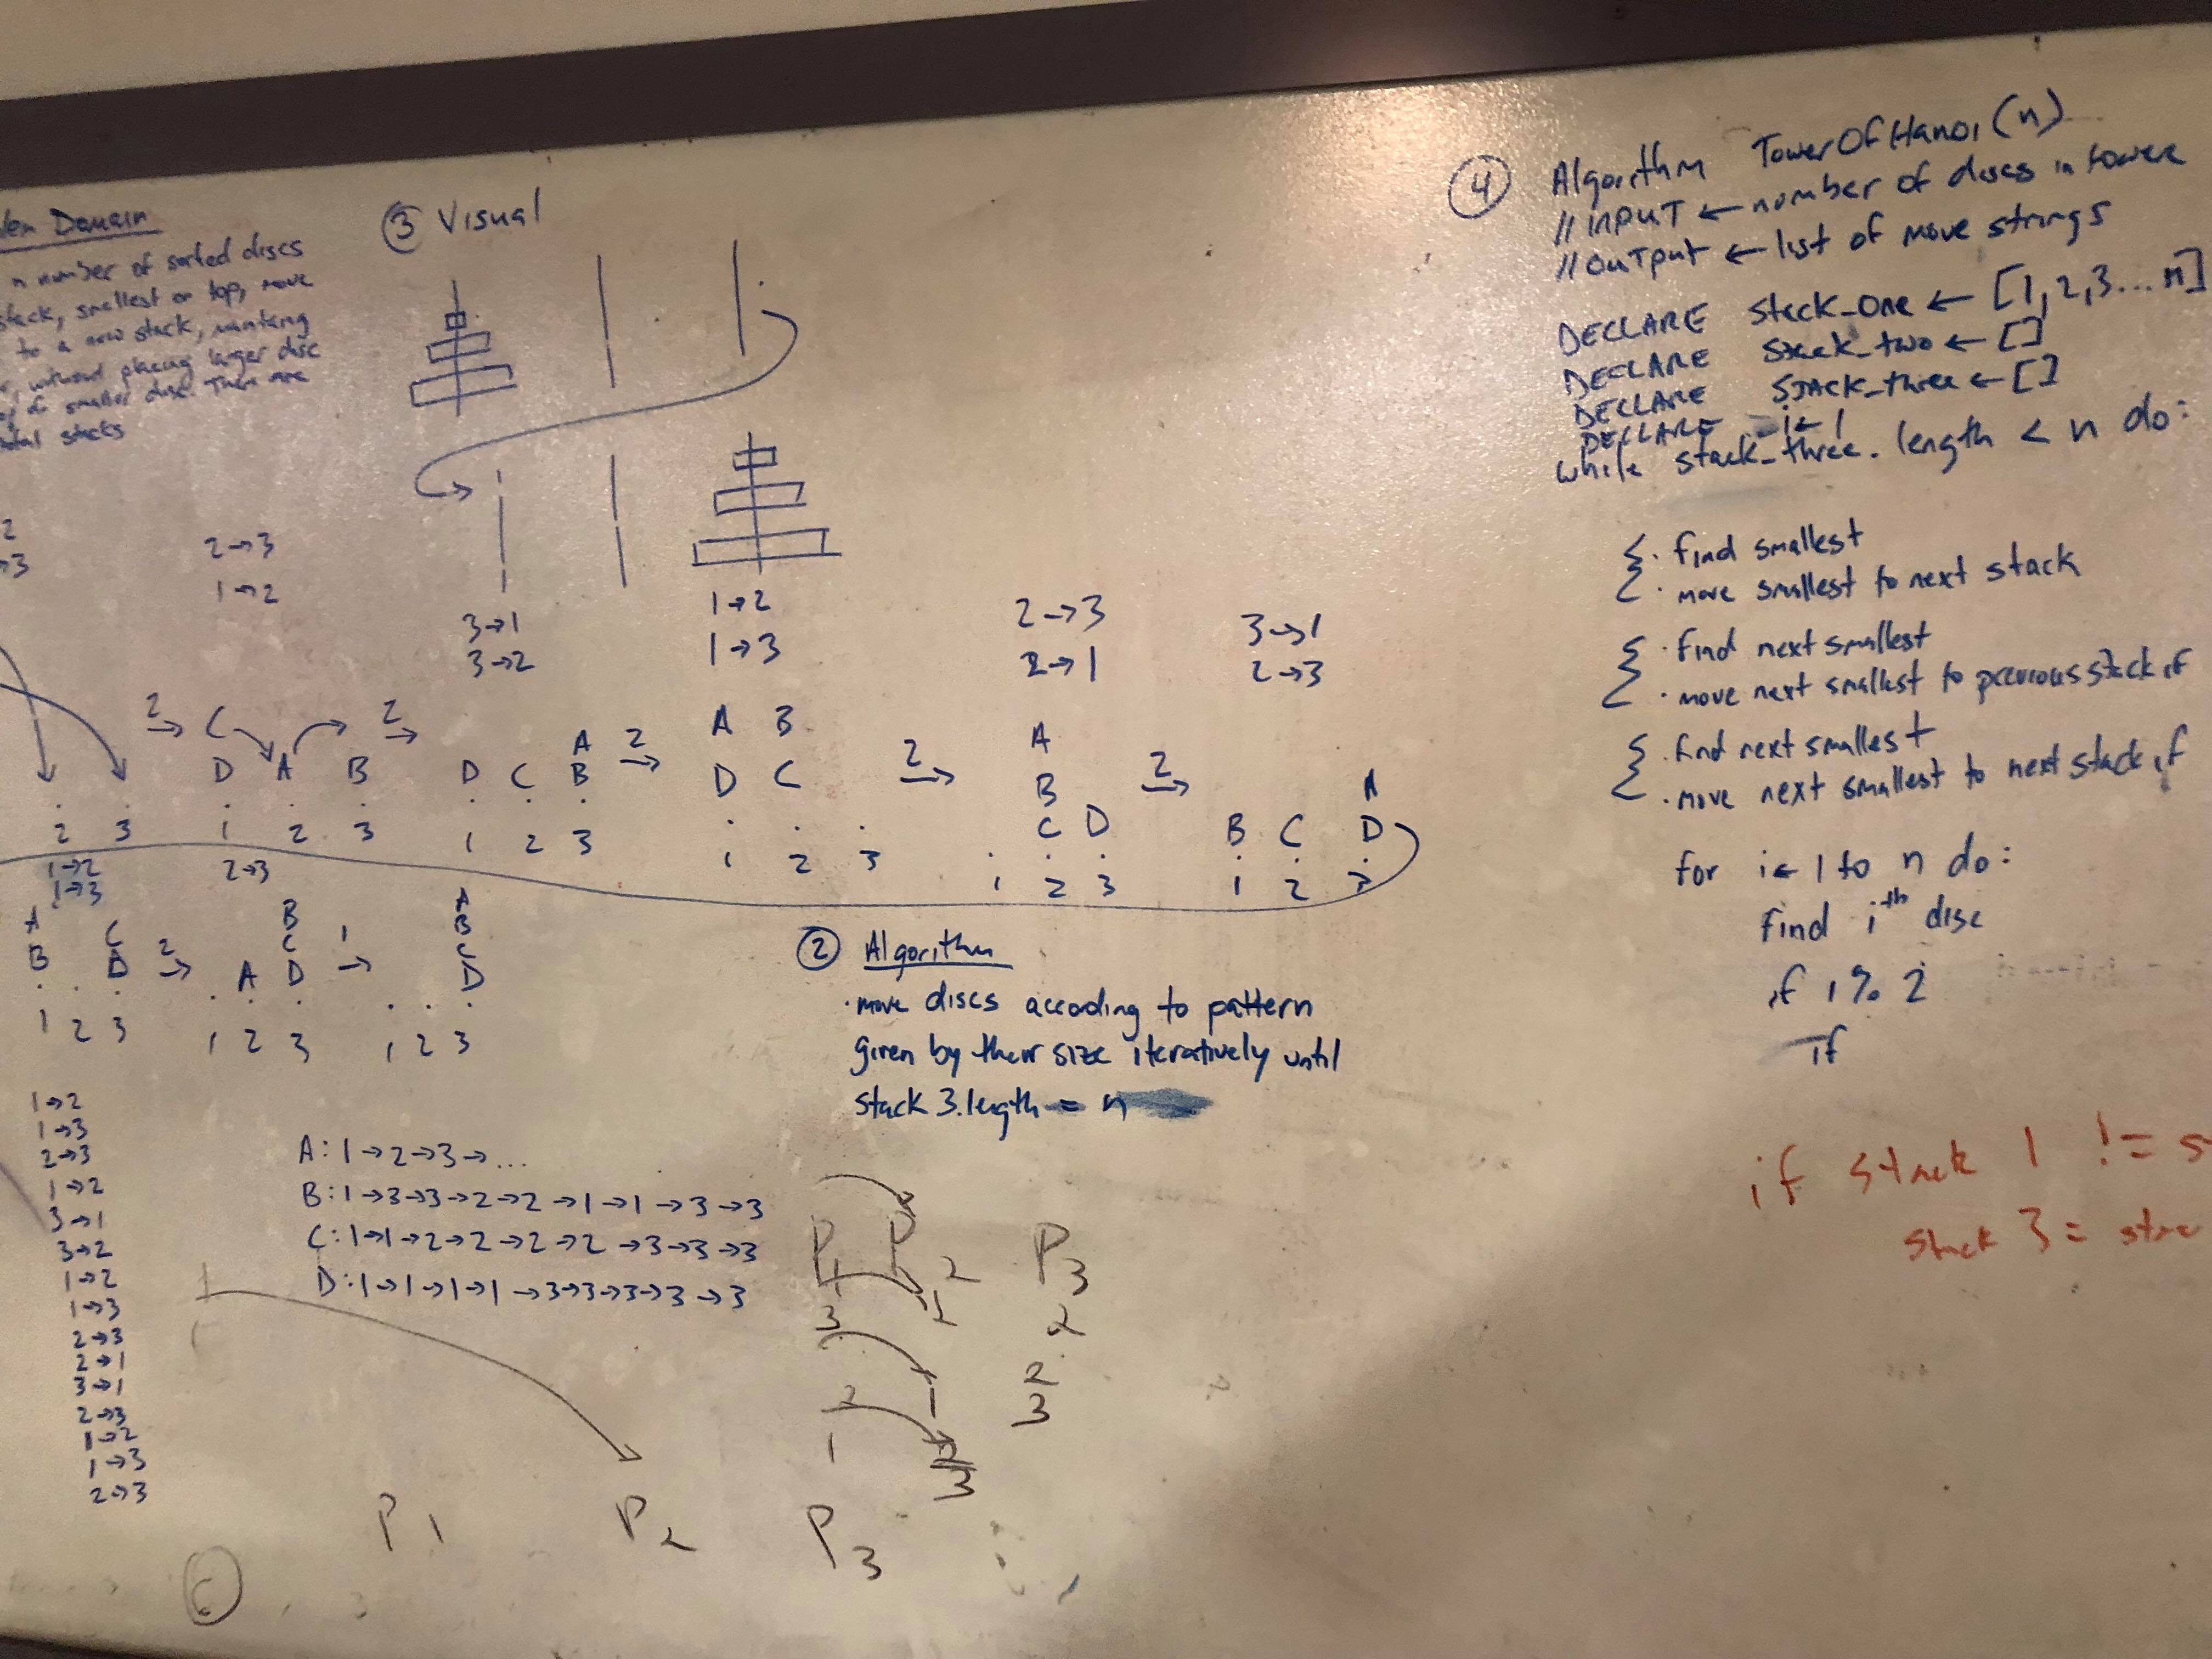 Domain
n number of sorted discs
stack, smallest on top, move
to a new stack,
without placing larger disc
of smaller disc. There are
stacks
③ Visual
2
→3
2→3
1→2
3→1
3→2
1→2
1→3
2→3
2→1
3→1
2→3
2 → C 2 →
D A B
1 2 3
2 3
A 2 →
D C B
1 2 3
A B
D C 2 →
1 2 3
A
B 2 →
C D
1 2 3
A
B C D
1 2 3
1→2
1→3
2→3
A
B C
D 2 →
1 2 3
B
C 1 →
A D
1 2 3
A
B
C
D
1 2 3
② Algorithm
· move discs according to pattern
given by their size iteratively until
stack 3.length = n
1→2
1→3
2→3
1→2
3→1
3→2
1→2
1→3
2→3
2→1
3→1
2→3
1→2
1→3
2→3
A: 1→2→3→...
B: 1→3→3→2→2→1→1→3→3
C: 1→1→2→2→2→2→3→3→3
D: 1→1→1→1→3→3→3→3→3
P3
2
3
P1 P2 P3
④ Algorithm TowerOfHanoi (n)
// INPUT ← number of discs in tower
// OUTPUT ← list of move strings
DECLARE stack_one ← [1,2,3...n]
DECLARE stack_two ← []
DECLARE STACK_three ← []
DECLARE i ← 1
while stack_three.length < n do:
{ · find smallest
· move smallest to next stack
{ · find next smallest
· move next smallest to previous stack if
{ · find next smallest
· move next smallest to next stack if
for i ← 1 to n do:
find iᵗʰ disc
if i % 2
if
if stack 1 != s
stack 3 =